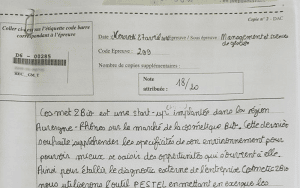 Copie n° 2 - DAC
Coller ci-dessus l'étiquette code barre
correspondant à l'épreuve
Date : Management et
Code Epreuve : 209
Nombre de copies supplémentaires :
Note
attribuée : 18/20
Cosmet 2 Bio est une start-up implantée dans la région
Auvergne-Rhônes sur le marché de la cosmétique Bio. Cette dernière
souhaite appréhender les spécificités de son environnement pour
pouvoir mieux se saisir des opportunités qui s'ouvrent à elle.
Ainsi pour établir le diagnostic externe de l'entreprise Cosmetic 2 Bio
nous utiliserons l'outil PESTEL en mettant en exergue les